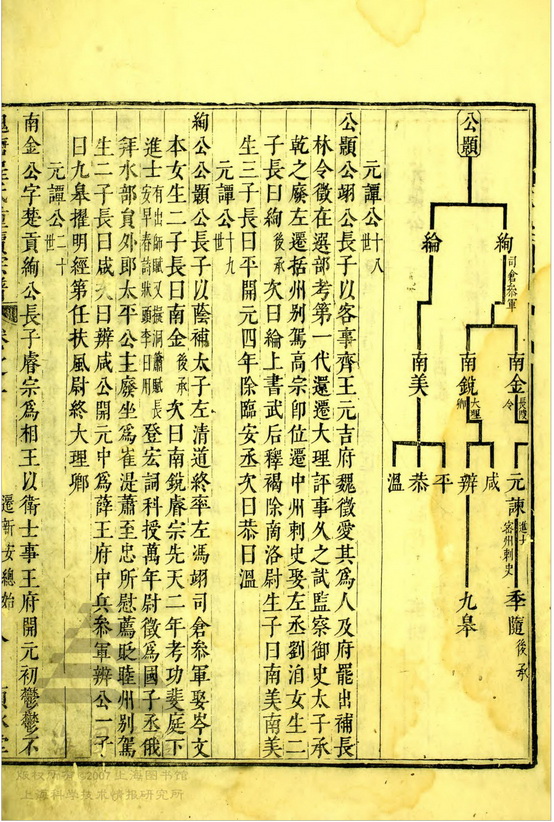 公顥
絢司倉叅軍
綸
南金長陵令
南鏡大理卿
南美
元諫進士密州刺史
咸
辨
平
恭
溫
季隨後承
九皋
元譚公十八世
公顥公翊公長子以客事齊王元吉府魏徵愛其爲人及府罷出補長
林令徵在選部考第一代還遷大理評事久之試監察御史太子承
乾之廢左遷括州别駕高宗卽位遷中州刺史娶左丞劉洎女生二
子長曰絢後承次曰綸上書武后釋褐除南洛尉生子曰南美南美
生三子長曰平開元四年除臨安丞次曰恭曰溫
元譚公十九世
絢公公顥公長子以蔭補太子左清道終率左馮翊司倉叅軍娶岑文
本女生二子長曰南金後承次曰南鏡睿宗先天二年考功裴庭下
進士有出師賦又擬洞簫賦長安早春詩狀頭李日用登宏詞科授萬年尉徵爲國子丞俄
拜水部員外郎太平公主廢坐爲崔湜蕭至忠所慰薦貶睦州别駕
生二子長曰咸次曰辨咸公開元中爲薛王府中兵叅軍辨公一子
曰九皋擢明經第任扶風尉終大理卿
元譚公二十世
南金公字楚貢絢公長子睿宗爲相王以衛士事王府開元初鬱鬱不
遷新安總始
版权所有 2007 上海图书馆
上海科学技术情报研究所